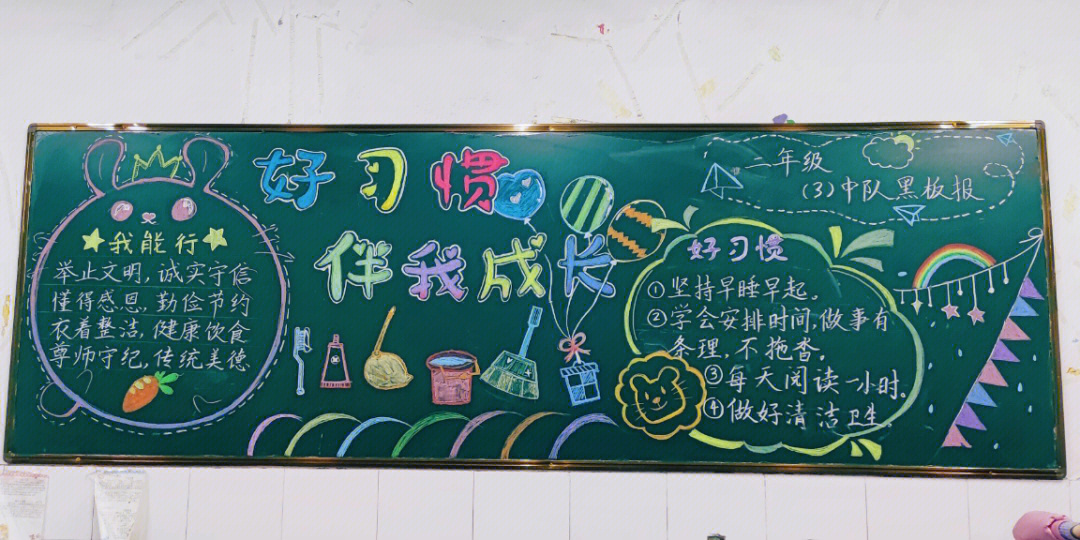 好习惯
伴我成长
我能行
举止文明,诚实守信
懂得感恩,勤俭节约
衣着整洁,健康饮食
尊师守纪,传统美德
二年级
(3)中队黑板报
好习惯
①坚持早睡早起。
②学会安排时间,做事有
条理,不拖沓。
③每天阅读一小时。
④做好清洁卫生。